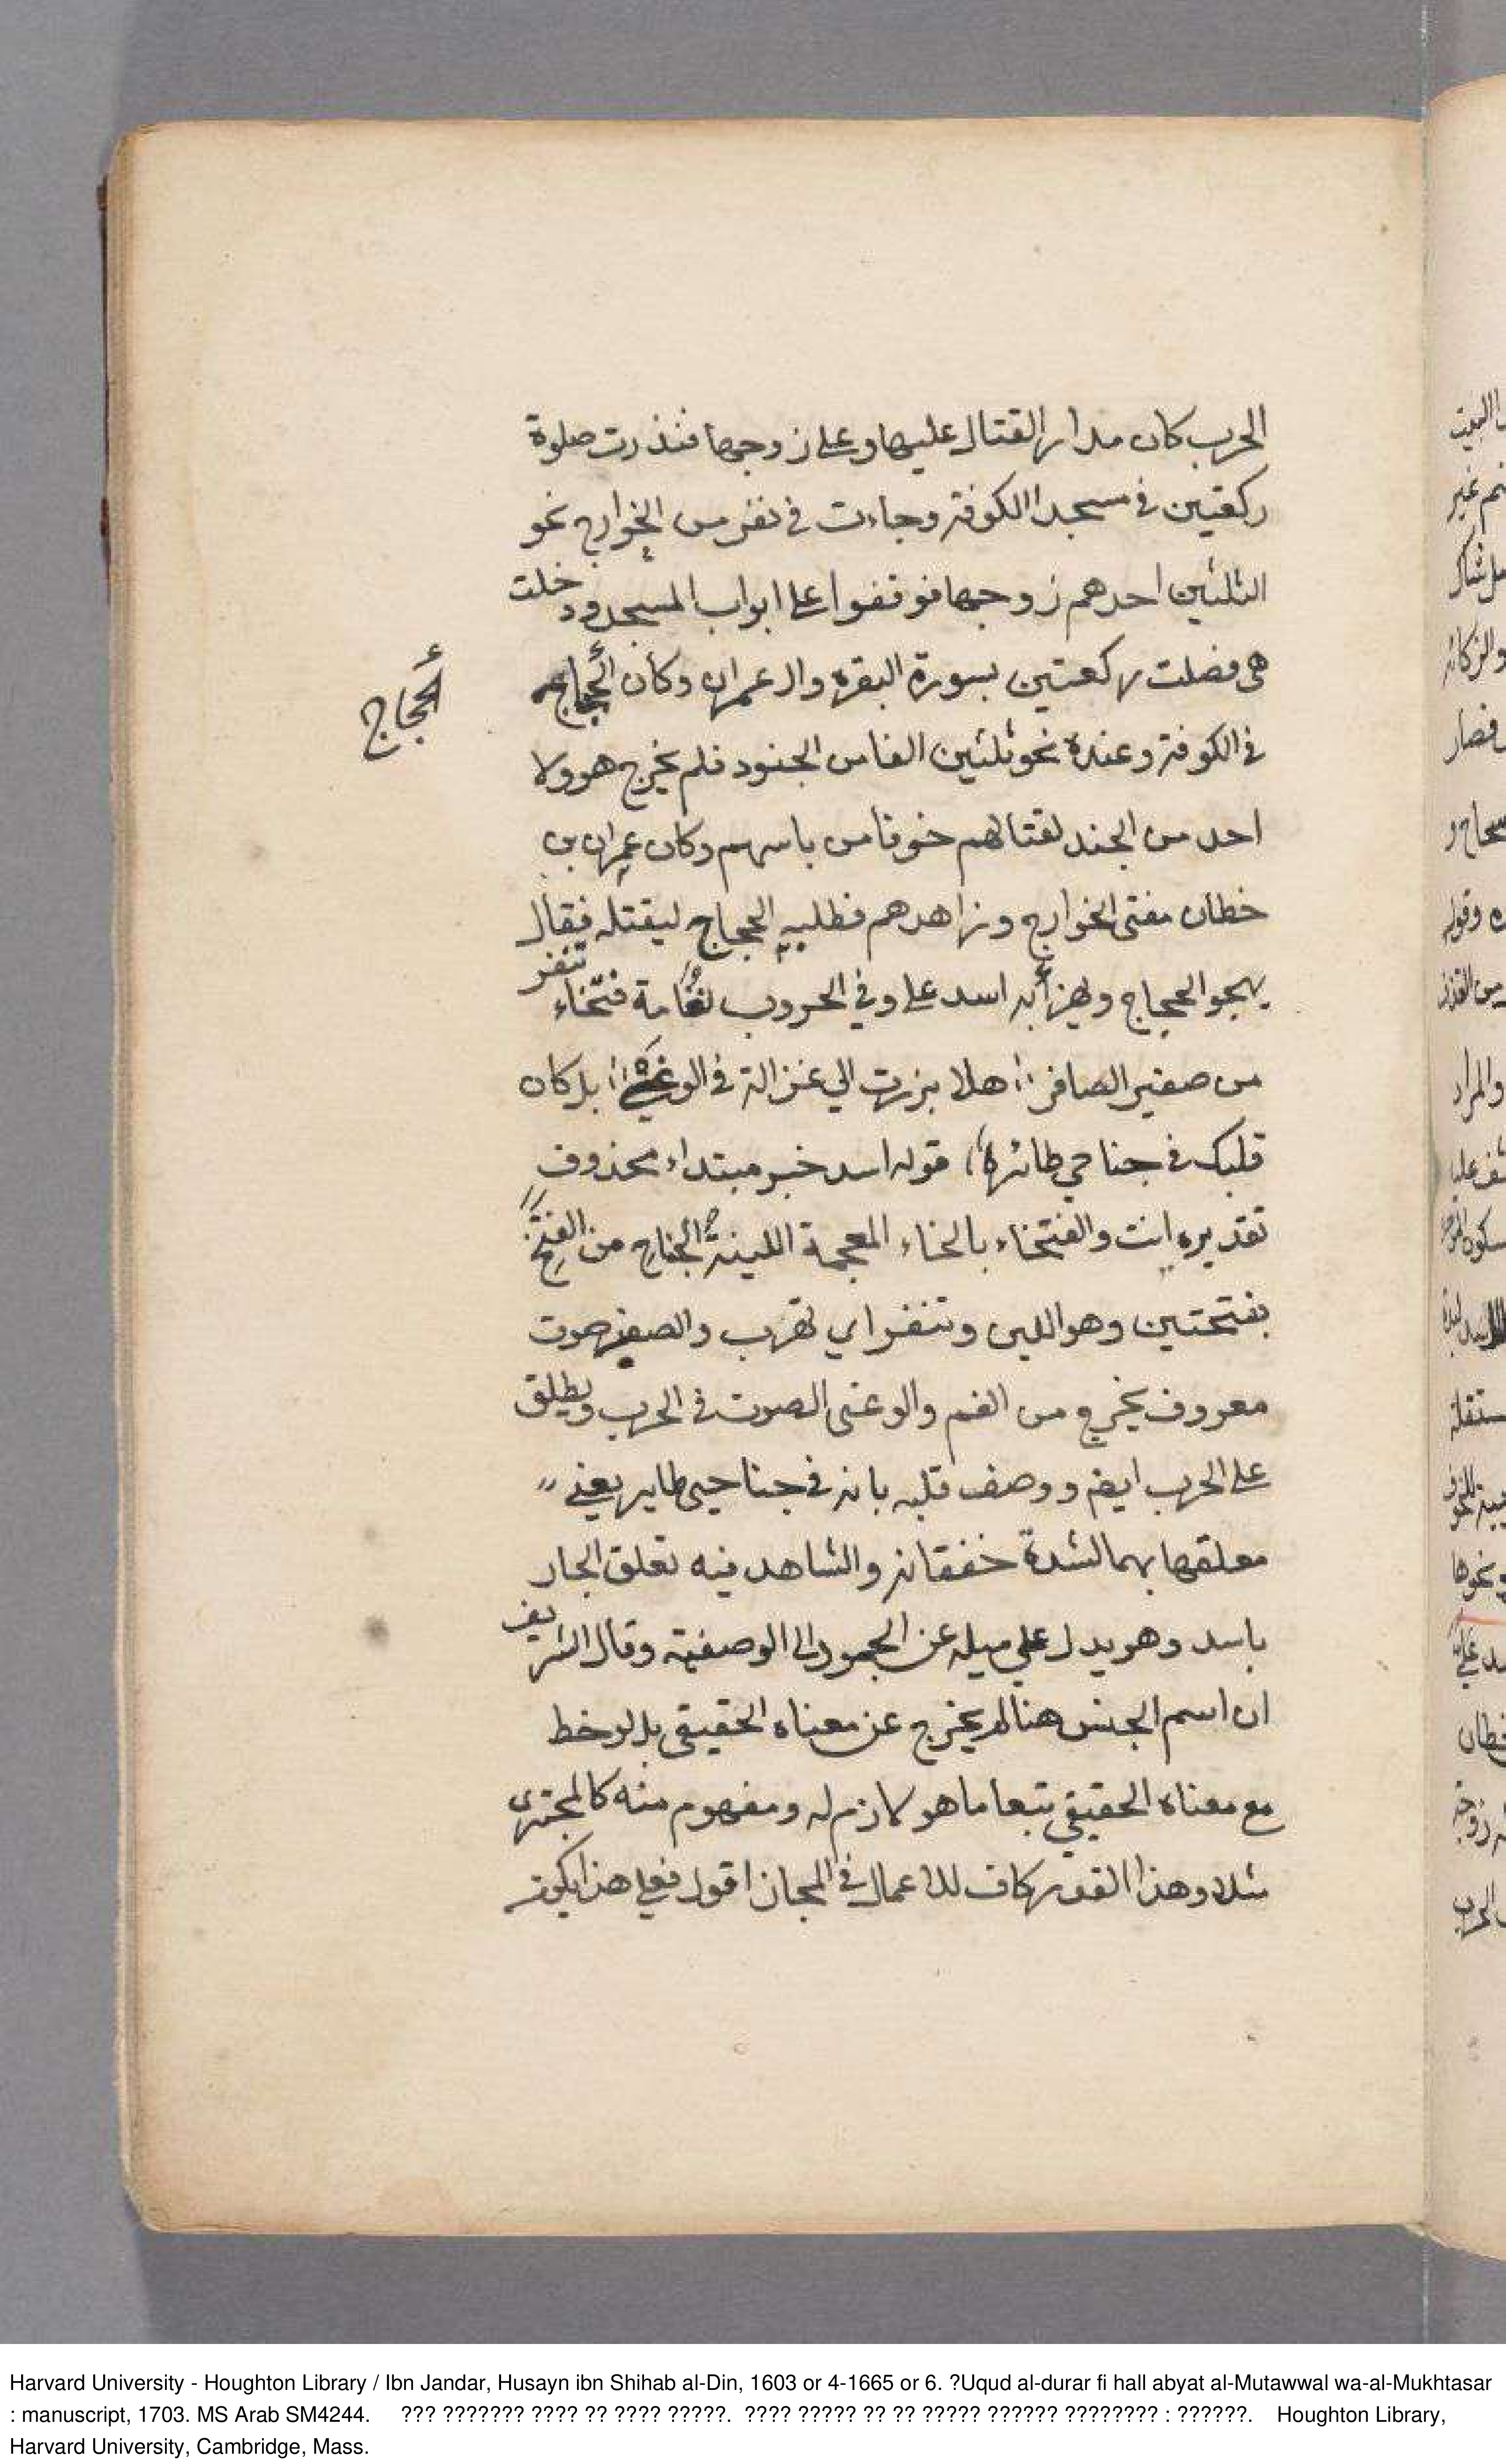 الحرب كان مدار القتال عليها وعلى زوجها فنذرت صلوة
ركعتين في مسجد الكوفة وجاءت في نفر من الخوارج نحو
الثلثين احدهم زوجها فوقفوا على ابواب المسجد ودخلت
هي فصلت ركعتين بسورة البقره وال عمران وكان الحجاج
حجاج
في الكوفة وعنده نحو ثلثين الفا من الجنود فلم يخرج هو ولا
احد من الجند لقتالهم خوفا من باسهم وكان عمران بن
خطان مفتى الخوارج وزاهدهم فطلبه الحجاج ليقتله فقال
يهجو الحجاج ويهزأ به اسد على وفي الحروب نعامة فتخاء تنفر
من صفير الصافر هلا برزت الي غزالة في الوغى بل كان
قلبك في جناحي طائر قوله اسد خبر مبتداء محذوف
تقديره انت والفتخاء بالخاء المعجمة اللينة الجناح من الفتخ
بفتحتين وهو اللين وتنفر اي تهرب والصفير صوت
معروف يخرج من الفم والوغى الصوت في الحرب ويطلق
على الحرب ايضا ووصف قلبه بانه في جناحى طاير يعني
معلقها بهما لشدة خفقانه والشاهد فيه تعلق الجار
باسد وهو يدل على ميله عن الجمود الى الوصفية وقال الشريف
ان اسم الجنس هنا لم يخرج عن معناه الحقيقي بل لوحظ
مع معناه الحقيقي تبعا ما هو لازم له ومفهوم منه كالمجترى
مثلا وهذا القدر كاف للاعمال في المجاز اقول فعلى هذا يكون
Harvard University - Houghton Library / Ibn Jandar, Husayn ibn Shihab al-Din, 1603 or 4-1665 or 6. ?Uqud al-durar fi hall abyat al-Mutawwal wa-al-Mukhtasar
: manuscript, 1703. MS Arab SM4244. ??? ??????? ???? ?? ???? ?????. ???? ????? ?? ?? ????? ?????? ???????? : ??????. Houghton Library,
Harvard University, Cambridge, Mass.